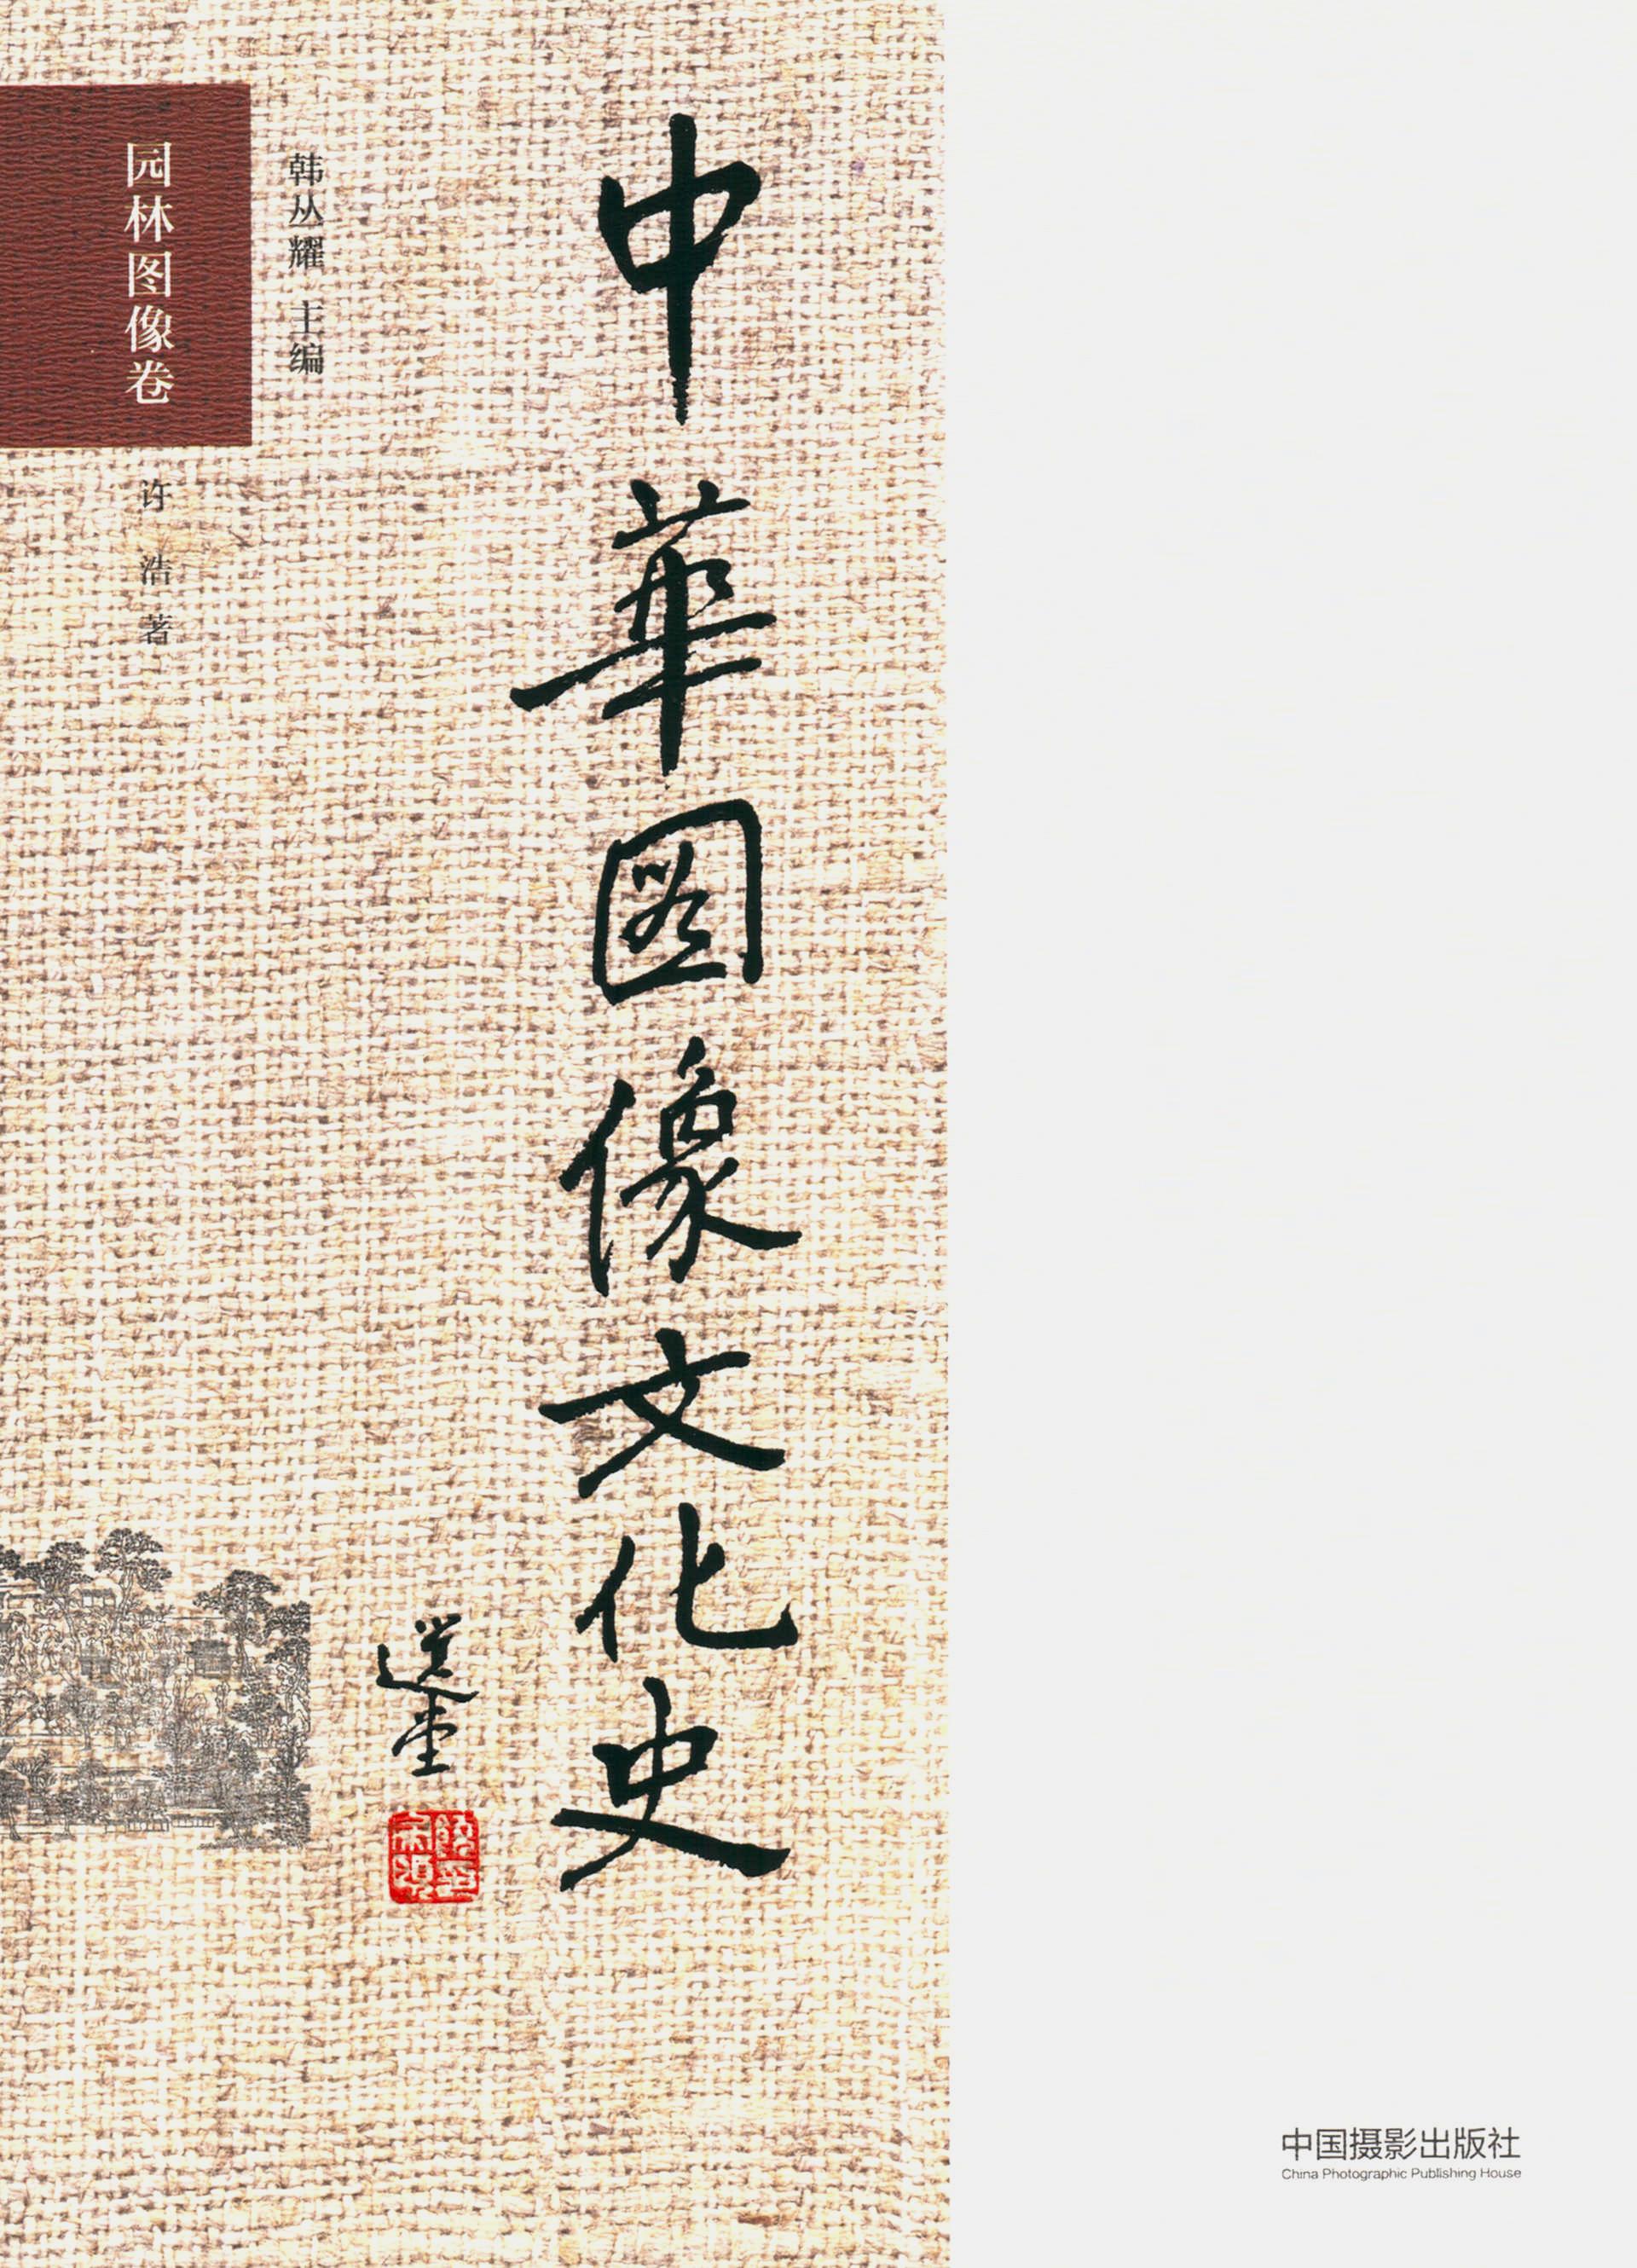 中華圖像文化史
韩丛耀 主编
园林图像卷
许 浩 著
選堂
中国摄影出版社
China Photographic Publishing House